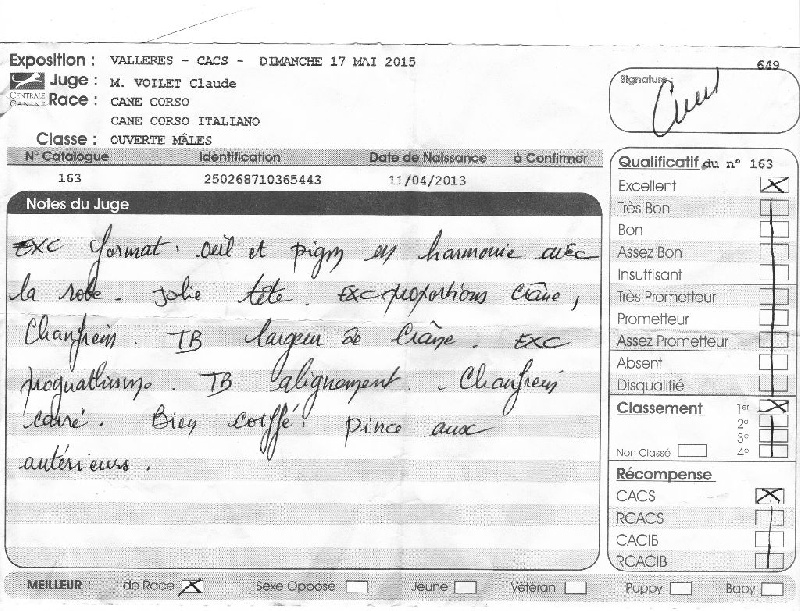 Exposition : VALLERES - CACS - DIMANCHE 17 MAI 2015
649
Juge : M. VOILET Claude
CENTRALE
CANINE
Race : CANE CORSO
CANE CORSO ITALIANO
Classe : OUVERTE MÂLES
Signature :
N° Catalogue Identification Date de Naissance à Confirmer
163 250268710365443 11/04/2013
Notes du Juge
EXC format. oeil et pigm en harmonie avec
la robe. Jolie tête. EXC proportions Crâne,
Chanfrein. TB largeur de Crâne. EXC
prognathisme. TB alignement. Chanfrein
carré. Bien coiffé. pince aux
antérieurs.
Qualificatif du n° 163
Excellent X
Très Bon
Bon
Assez Bon
Insuffisant
Très Prometteur
Prometteur
Assez Prometteur
Absent
Disqualifié
Classement 1er X
2°
3°
Non Classé 4°
Récompense
CACS X
RCACS
CACIB
RCACIB
MEILLEUR : de Race X Sexe Opposé Jeune Vétéran Puppy Baby